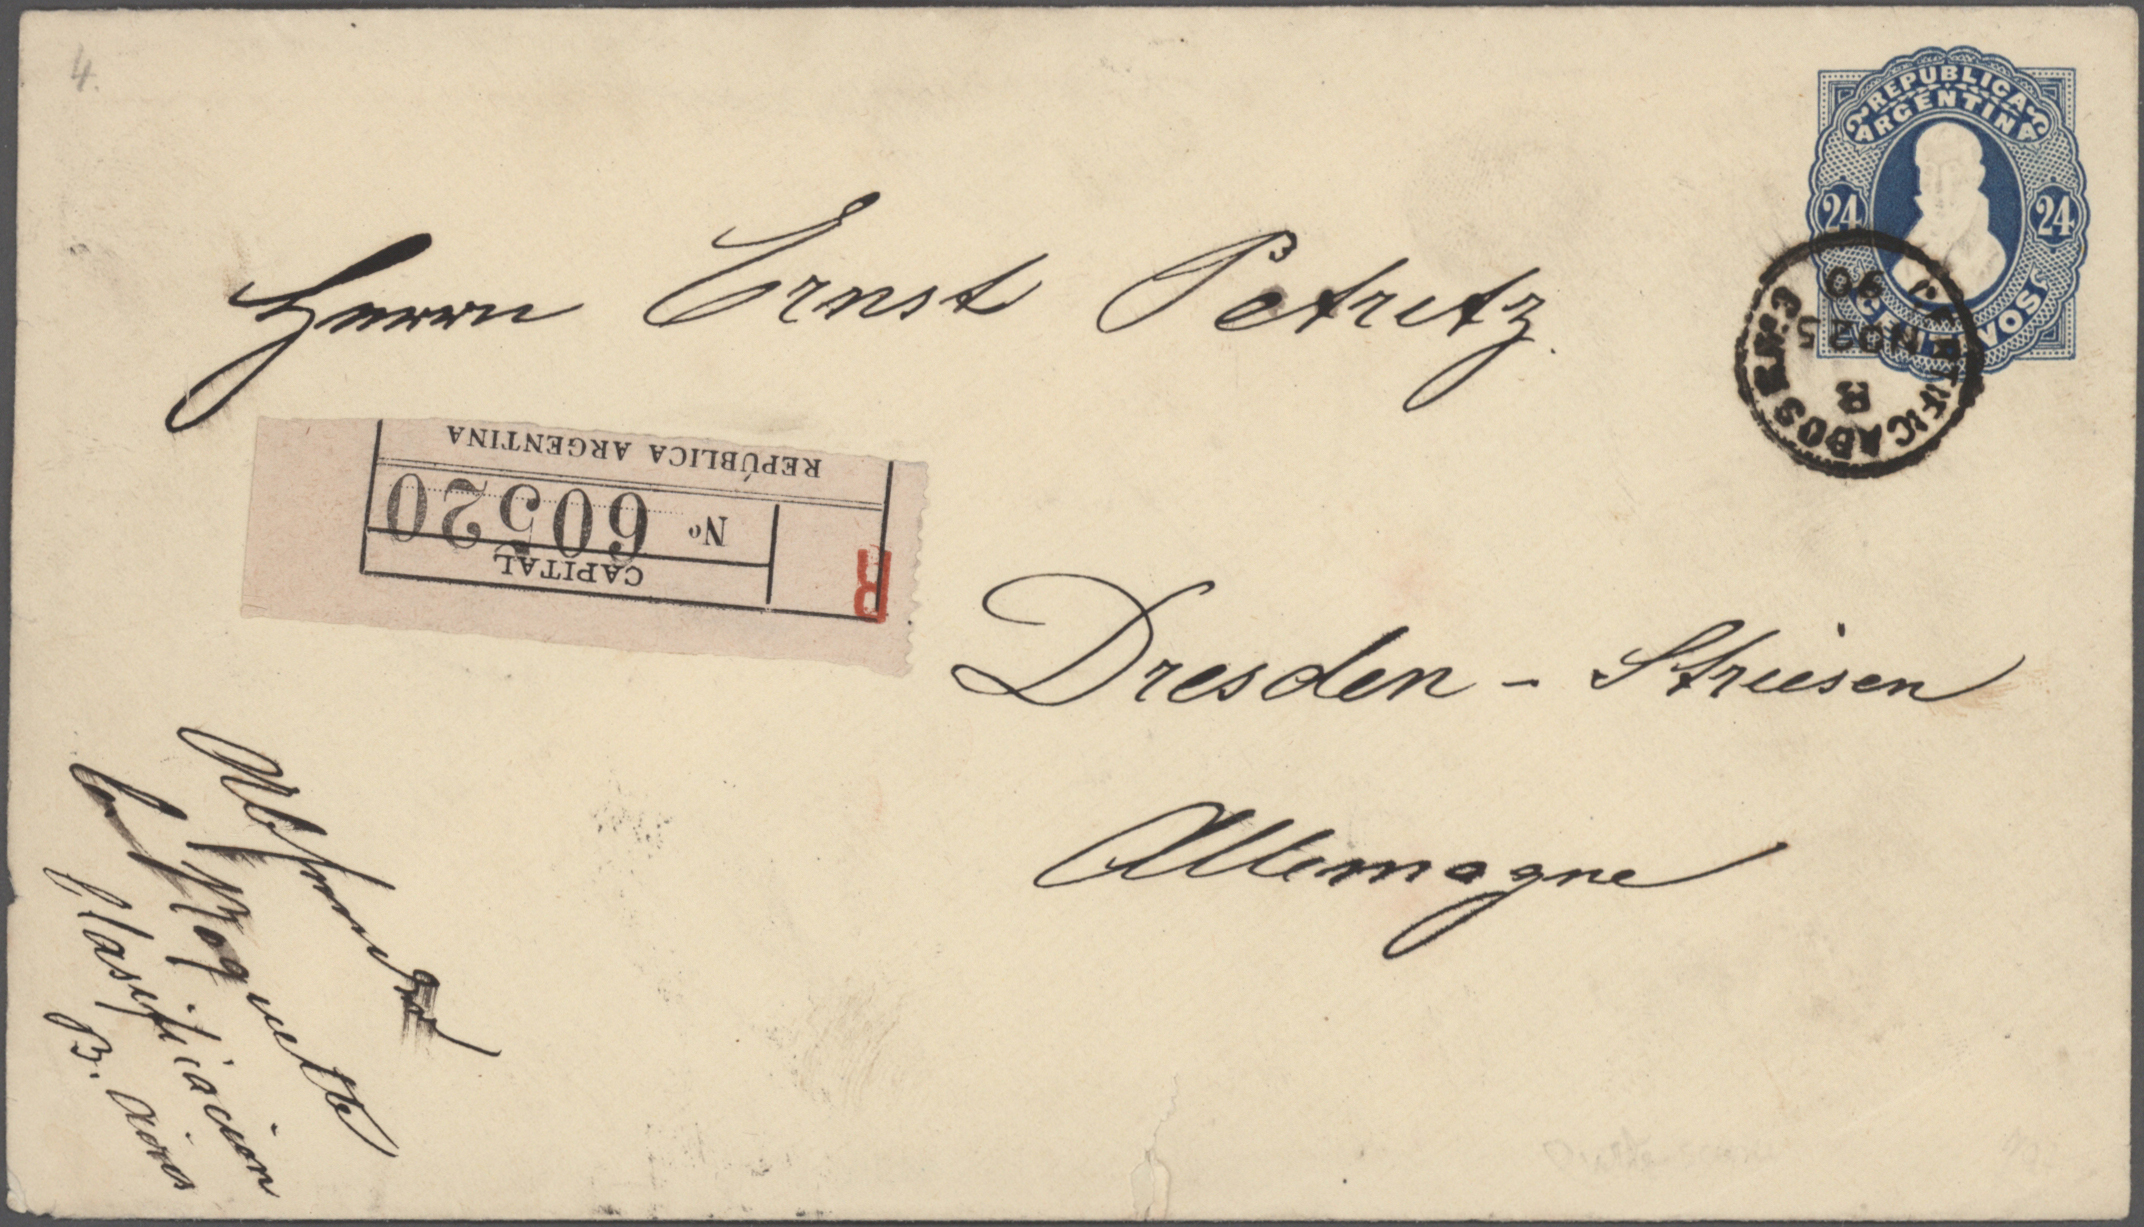 4.
REPÚBLICA
ARGENTINA
24 24
CENTAVOS
CERTIFICADOS
B
NO 25
90
Herrn Ernst Petritz.
REPÚBLICA ARGENTINA
Nº 60520
CAPITAL
R
Dresden - Striesen
Allemagne
Clasificacion
B. Aires